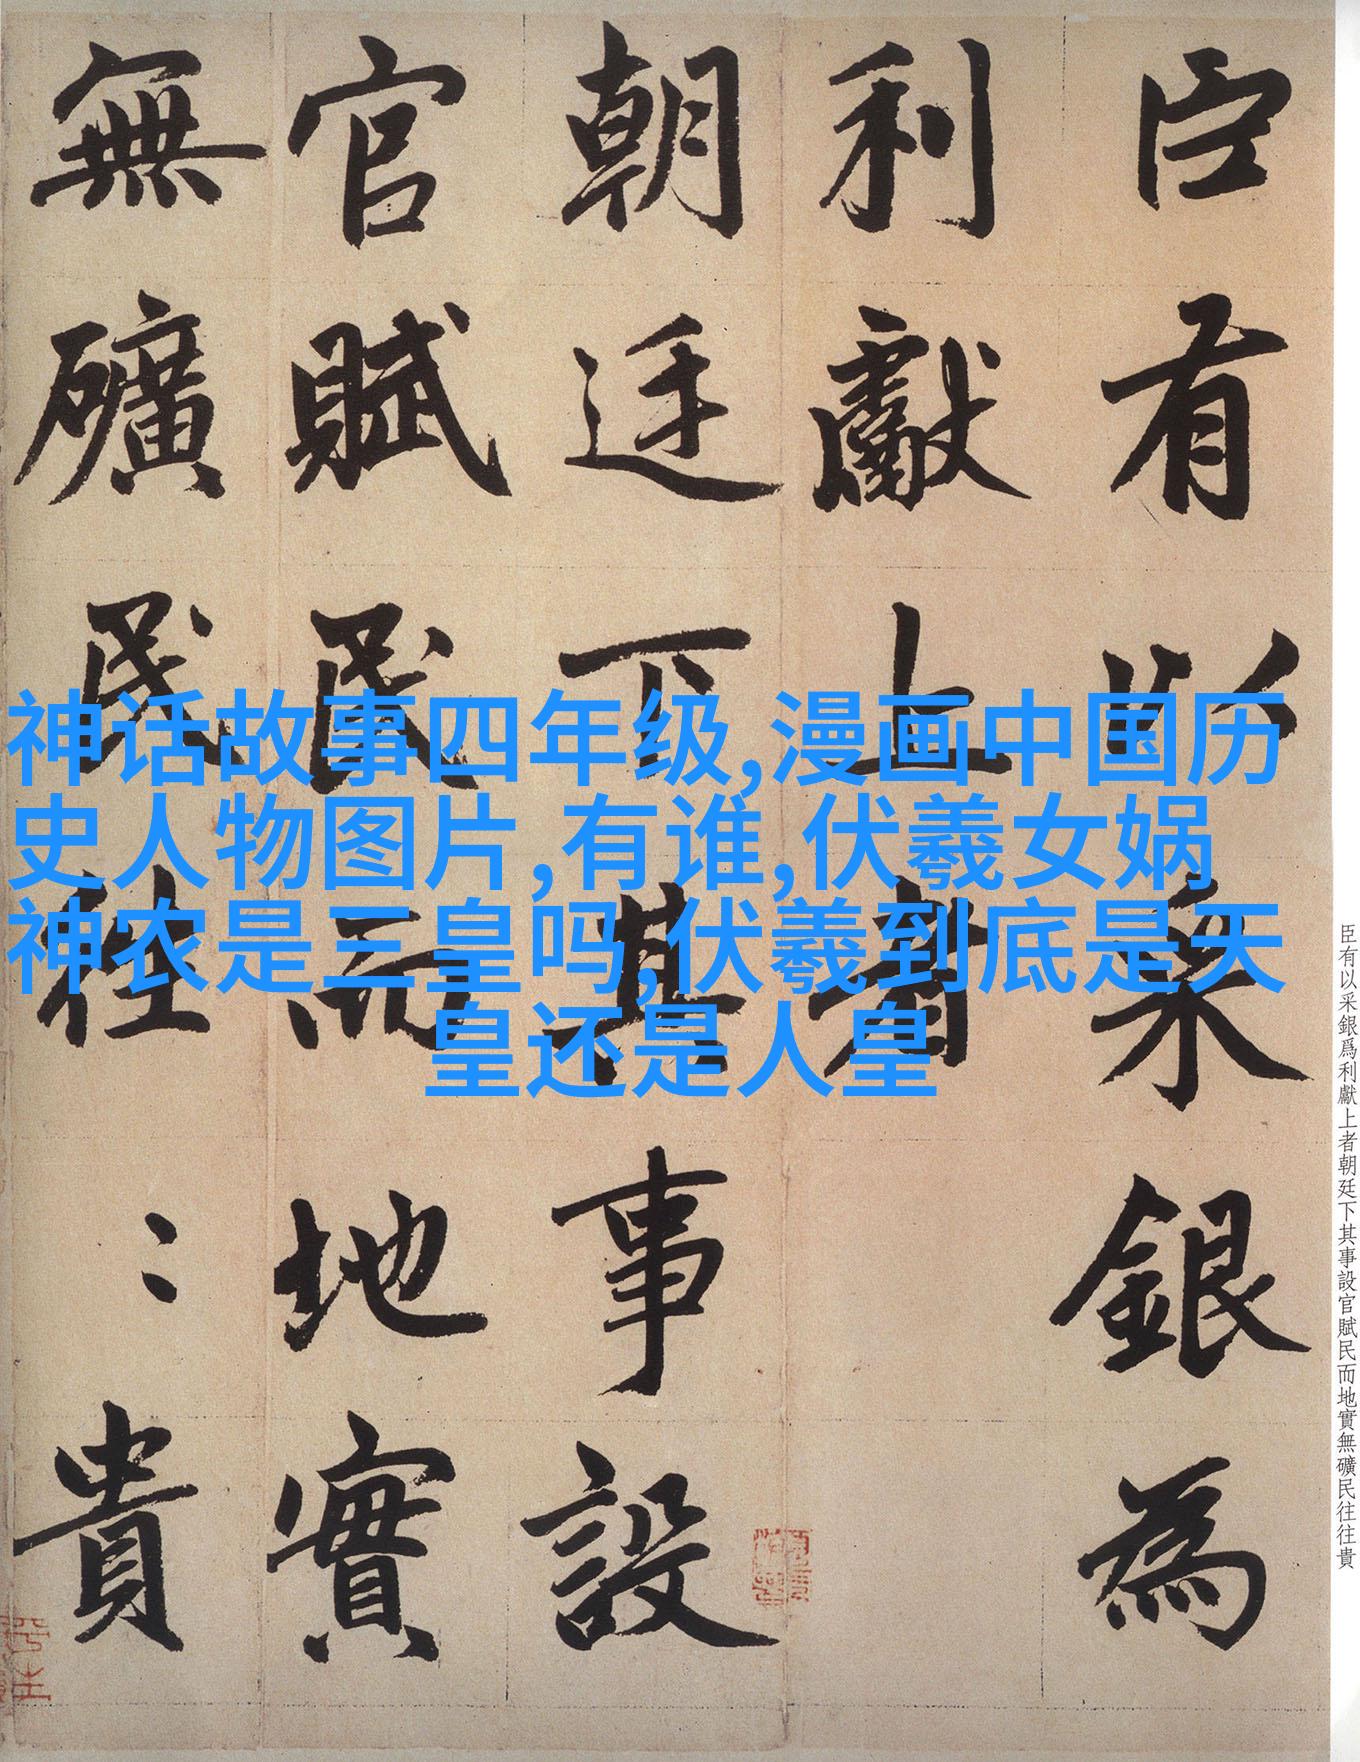 臣有以采銀為
利獻上者
朝廷下其事設
官賦民而地實
無礦民往〻貴
神话故事四年级,漫画中国历
史人物图片,有谁,伏羲女娲
神农是三皇吗,伏羲到底是天
皇还是人皇
臣有以采銀爲利獻上者朝廷下其事設官賦民而地實無礦民往往貴